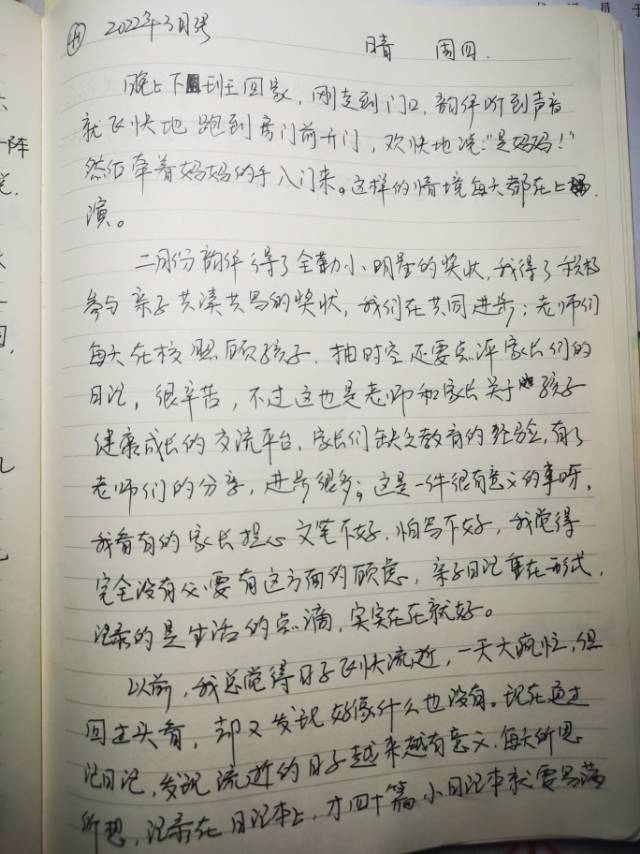 ㊵ 2022年3月3号 晴 周四.
晚上下班回家，刚走到门口，韵伊听到声音
就飞快地跑到房门前开门，欢快地说："是妈妈！"
然后牵着妈妈的手入门来。这样的情境每天都在上
演。
二月份韵伊得了全勤小明星的奖状，我得了积极
参与亲子共读共写的奖状，我们在共同进步；老师们
每天在校照顾孩子，抽时空还要点评家长们的
日记，很辛苦，不过这也是老师和家长关于孩子
健康成长的交流平台，家长们缺乏教育的经验，有了
老师们的分享，进步很多；这是一件很有意义的事呀。
我看有的家长担心文笔不好，怕写不好，我觉得
完全没有必要有这方面的顾虑，亲子日记重在形式，
记录的是生活的点滴，实实在在就好。
以前，我总觉得日子飞快流逝，一天大疯忙，但
回过头看，却又发现好像什么也没有。现在通过
记日记，发现流逝的日子越来越有意义，每天所思
所想，记录在日记本上，才四十篇小日记本就要写满